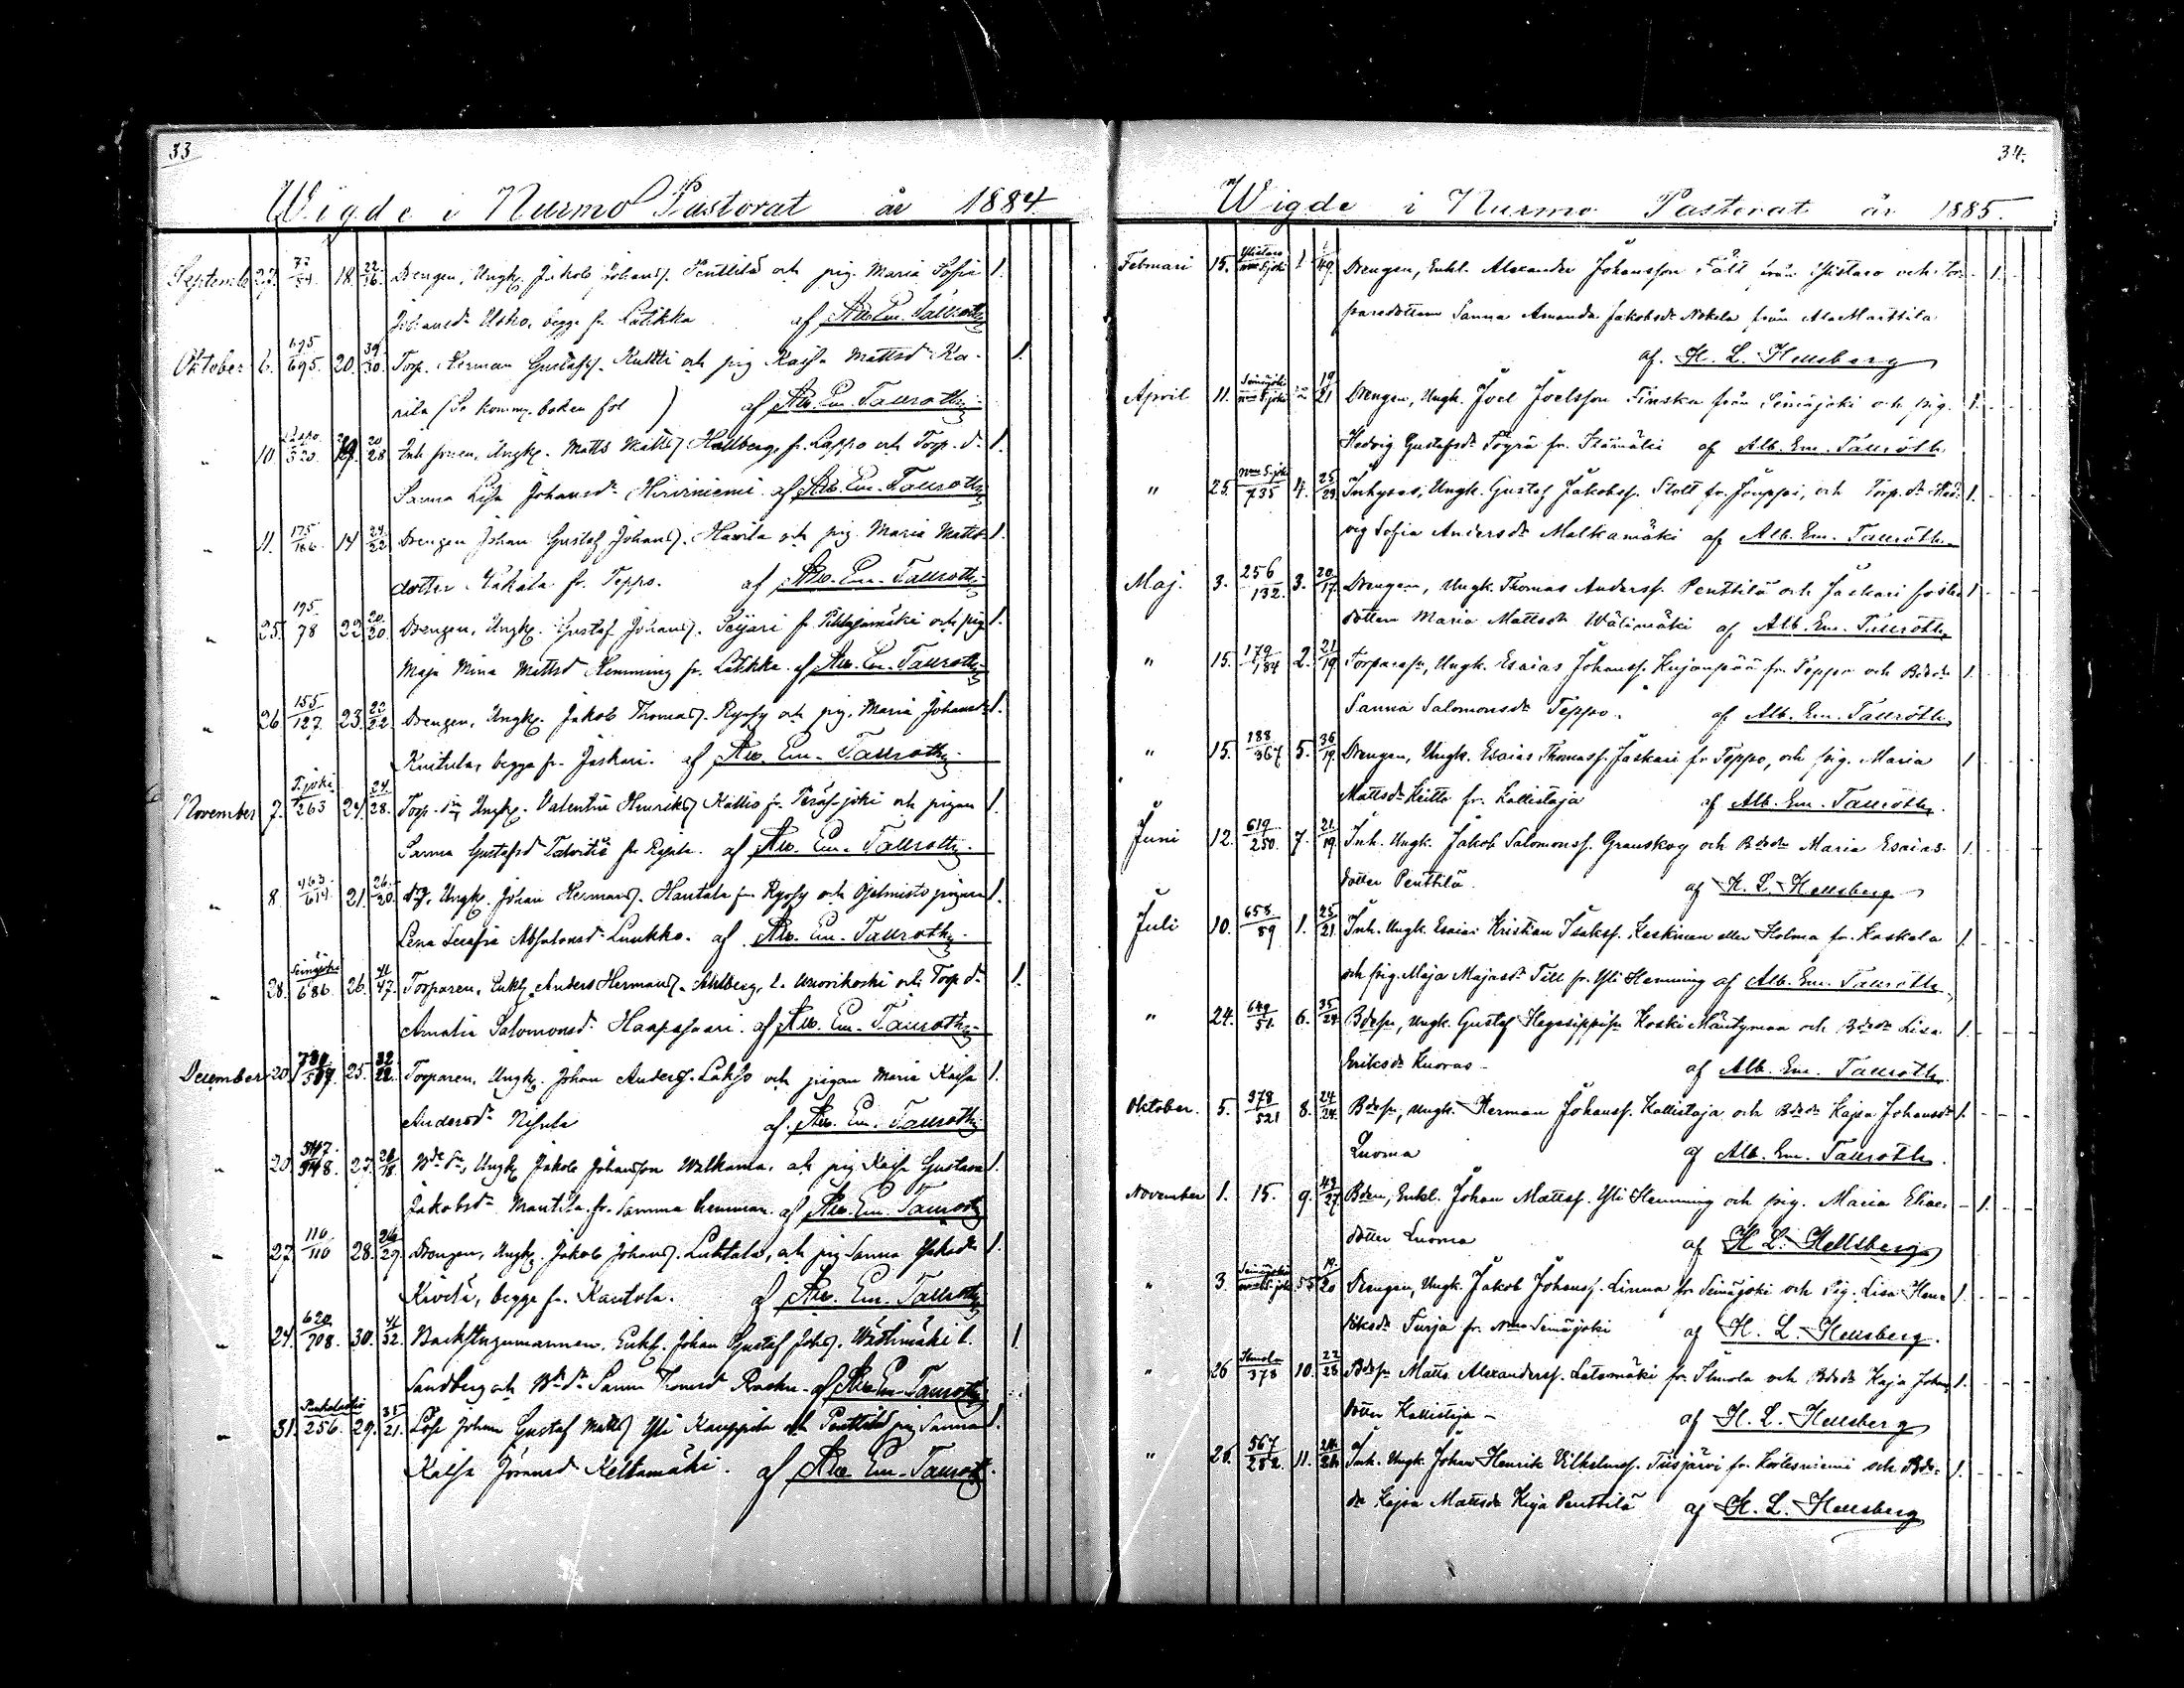 33
Wigde i Nurmo Pastorat år 1884.
Septemb 27. 18. 22/26. Drengen, Ungk. Jakob Johansf. Penttilä och pig. Maria Sofia 1.
Johansdr Usko, begge fr. Latikka af Alb. Em. Tauroth
Oktober 6. 695/695. 20. 39/30. Torp. Herman Gustafsf. Kuhtti och pig Kaisa Mattsdr Ka- 1.
rila (Se kommz. boken fol ) af Alb. Em. Tauroth
" 10. Lappo 19. 20/28 Inh sonen, Ungk. Matts Mattsf. Hallberg fr. Lappo och Torp. dr 1.
Sanna Lisa Johansdr Hirviniemi. af Alb. Em. Tauroth
" 11. 175/186. 14 24/22 Drengen Johan Gustaf Johansf. Havila och pig. Maria Matts 1.
dotter Kakala fr. Teppo. af Alb. Em. Tauroth
" 25. 195./78 22 20./20. Drengen, Ungk. Gustaf Johansf. Seijari fr Pihlajamäki och pig 1.
Maja Mina Mattsd Hemming fr. Latikka. af Alb. Em. Tauroth
" 26 155/127. 23. 22/22. Drengen, Ungk. Jakob Thomasf. Ryssy och pig. Maria Johansdr 1.
Knihtila, begge fr. Jaskari. af Alb. Em. Tauroth
November 7. P.sjoki/263 24. 24/28. Torp. sn Ungk. Valentin Henriksf Kallio fr. Peräsejoki och pigan 1.
Sanna Gustafsd Talvitie fr. af Alb. Em. Tauroth
" 8. 463/614. 21. 26./20. drg, Ungk. Johan Hermansf. Hautala fr. Ryssy och Ojelmisto pigan 1.
Lena Serafia Absalonsdr Luukko. af Alb. Em. Tauroth
" 28. Seinäjoki/686. 26. 41/47. Torparen, Enkl. Anders Hermansf. Ahlberg, l. Wuorikoski och Torp dr 1.
Amalia Salomonsdr Haapasaari. af Alb. Em. Tauroth
December 20. 25. 32/22. Torparen, Ungk. Johan Andersf. Lakso och pigan Maria Kaisa 1.
Andersdr Nisula af. Alb. Em. Tauroth
" 20. 547./548. 27. Bde sn, Ungk Jakob Johansson Walkama, och pig Kaisa Gustava 1.
Jakobsdr Mantila fr. samma hemman. af Alb. Em. Tauroth
" 27. 110/110 28. 26/29. Drengen, Ungk. Jakob Johansf. Luhtala, och pig Sanna Jakobsdr 1.
Kivelä, begge fr. Kautola. af Alb. Em. Tauroth
" 24. 620./708. 30. 41/32. Backstugumannen, Enkl. Johan Gustaf Johsf. Wästimäki l. 1.
Sandberg och Bde dr Sanna Thomsd af Alb Em. Tauroth
" 31. 256. 29. 35/21. Johan Gustaf Mattsf Yli Kauppila och Penttilä pig Sanna 1.
Kaisa Jöransd Keltamäki. af Alb. Em. Tauroth.
34.
Wigde i Nurmo Pastorat år 1885.
Februari 15. Ylistaro/nm S.joki 1 /49 Drengen, Enkl. Alexander Johansson Fält från Ylistaro och Tor- 1.
paredottern Sanna Amanda Jakobsdr Nokela från Ala Marttila
af. H. L. Hellsberg
April 11. Seinäjoki/nm S.joki 19/21 Drengen, Ungk. Joel Joelsson Finska från Seinäjoki och pig. 1.
Hedvig Gustafsdr Töyrä fr. af Alb. Em. Tauroth
" 25. nm S.jok/735 4. 25/29 Inhyses, Ungk. Gustaf Jakobsf. Slott fr. Jouppi, och Torp. dr Hed- 1.
vig Sofia Andersdr Malkamäki af Alb. Em. Tauroth
Maj. 3. 256/132. 3. 20./17. Drengen, Ungk. Thomas Andersf. Penttilä och Jaskari foster 1
dottern Maria Mattsdr Wälimäki af Alb. Em. Tauroth
" 15. 179/184 2. 21/19 Torparesn, Ungk. Esaias Johansf. Kujanpää fr. Teppo och Bdedr 1.
Sanna Salomonsdr Teppo. af Alb. Em. Tauroth
" 15. 188/367 5. 36/19. Drengen, Ungk. Esaias Thomasf. Jaskari fr Teppo, och pig. Maria 1
Mattsdr Keitto fr. Kallistaja af Alb. Em. Tauroth.
Juni 12. 619/250. 7. 21./19 Inh. Ungk. Jakob Salomonsf. Granskog och Bdedr Maria Esaias- 1.
dotter Penttilä. af H. L. Hellsberg
Juli 10. 658./89 1. 25/21. Inh. Ungk. Esaias Kristian Isaksf. Keskinen eller Holma fr. Koskela 1.
och pig. Maja Majasdr Till fr. Yli Hemming af Alb. Em. Tauroth
" 24. 649/51. 6. 35/24. Bdesn, Ungk. Gustaf Hegesippisn Koski Mäntymaa och Bdedr Lisa 1.
Eriksdr Kuoras - af Alb. Em. Tauroth.
Oktober. 5. 378/521 8. 24/24. Bdesn, Ungk. Herman Johansf. Kallistaja och Bdedr Kajsa Johansdr 1.
Luoma af Alb. Em. Tauroth.
November 1. 15. 9. 49/27. Bden, Enkl. Johan Mattsf. Yli Hemming och pig. Maria Elias- 1.
dotter Luoma af H. L. Hellsberg
" 3. Seinäjoki/nm S.joki 55 19./20 Drengen, Ungk. Jakob Johansf. Linna fr Seinäjoki och Pig. Lisa Hen- 1.
riksdr Turja fr. Nmo Seinäjoki af H. L. Hellsberg.
" 26 Ilmola/378 10. 22/28 Bdesn Matts Alexandersf. Latomäki fr. Ilmola och Bdedr Kaja Johans 1.
dotter Kallistaja - af H. L. Hellsberg
" 26. 567/252. 11. Inh. Ungk. Johan Henrik Vilhelmsf. Tiisjärvi fr. Kortesniemi och Bde- 1.
dr Kajsa Mattsdr Heja Penttilä af H. L. Hellsberg